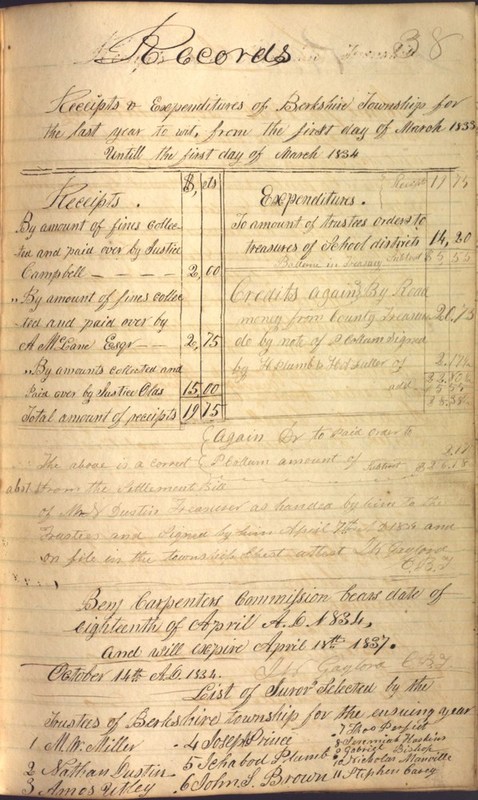 Records
38
Receipts & Expenditures of Berkshire Townships for
the last year to wit, from the first day of March 1833
Untill the first day of March 1834
Receipts . $, cts
By amount of fines collec-
ted and paid over by Justice
Campbell 2,00
" By amount of fines collec
ted and paid over by
A McLane Esqr 2,75
" By amounts collected and
Paid over by Justice Olds 15,00
Total amount of receipts 19 75
Expenditures . Receipts 19 75
To amount of trustees orders to
treasures of School districts 14,20
Ballance in treasury 5 55
Credits again, By Road
money from County Treasurer 20,75
do by note of P Collum Signed
by H Plumb & H
add
Again Dr to Paid order to
P Collum amount of
The above is a correct
abst. from the Settlement Bill
of Mr Dustin Treasurer as handed by him to the
Trustees and Signed by him April 7th AD 1834 and
on file in the township Chest attest Gaylord
Benj Carpenters Commission bears date of
eighteenth of April A.D. 1834,
and will expire April 18th 1837.
Gaylord
October 14th A.D. 1834.
List of Jurors Selected by the
Trustees of Berkshire township for the ensuing year
1 M.W. Miller 4 Joseph Prince 7 Theo Perfect
8 Jeremiah Hoskins
2 Nathan Dustin 5 Ichabod Plumb 9 Gabriel Bishop
10 Nicholas Manville
3 Amos Utley 6 John S. Brown 11 Stephen Carey